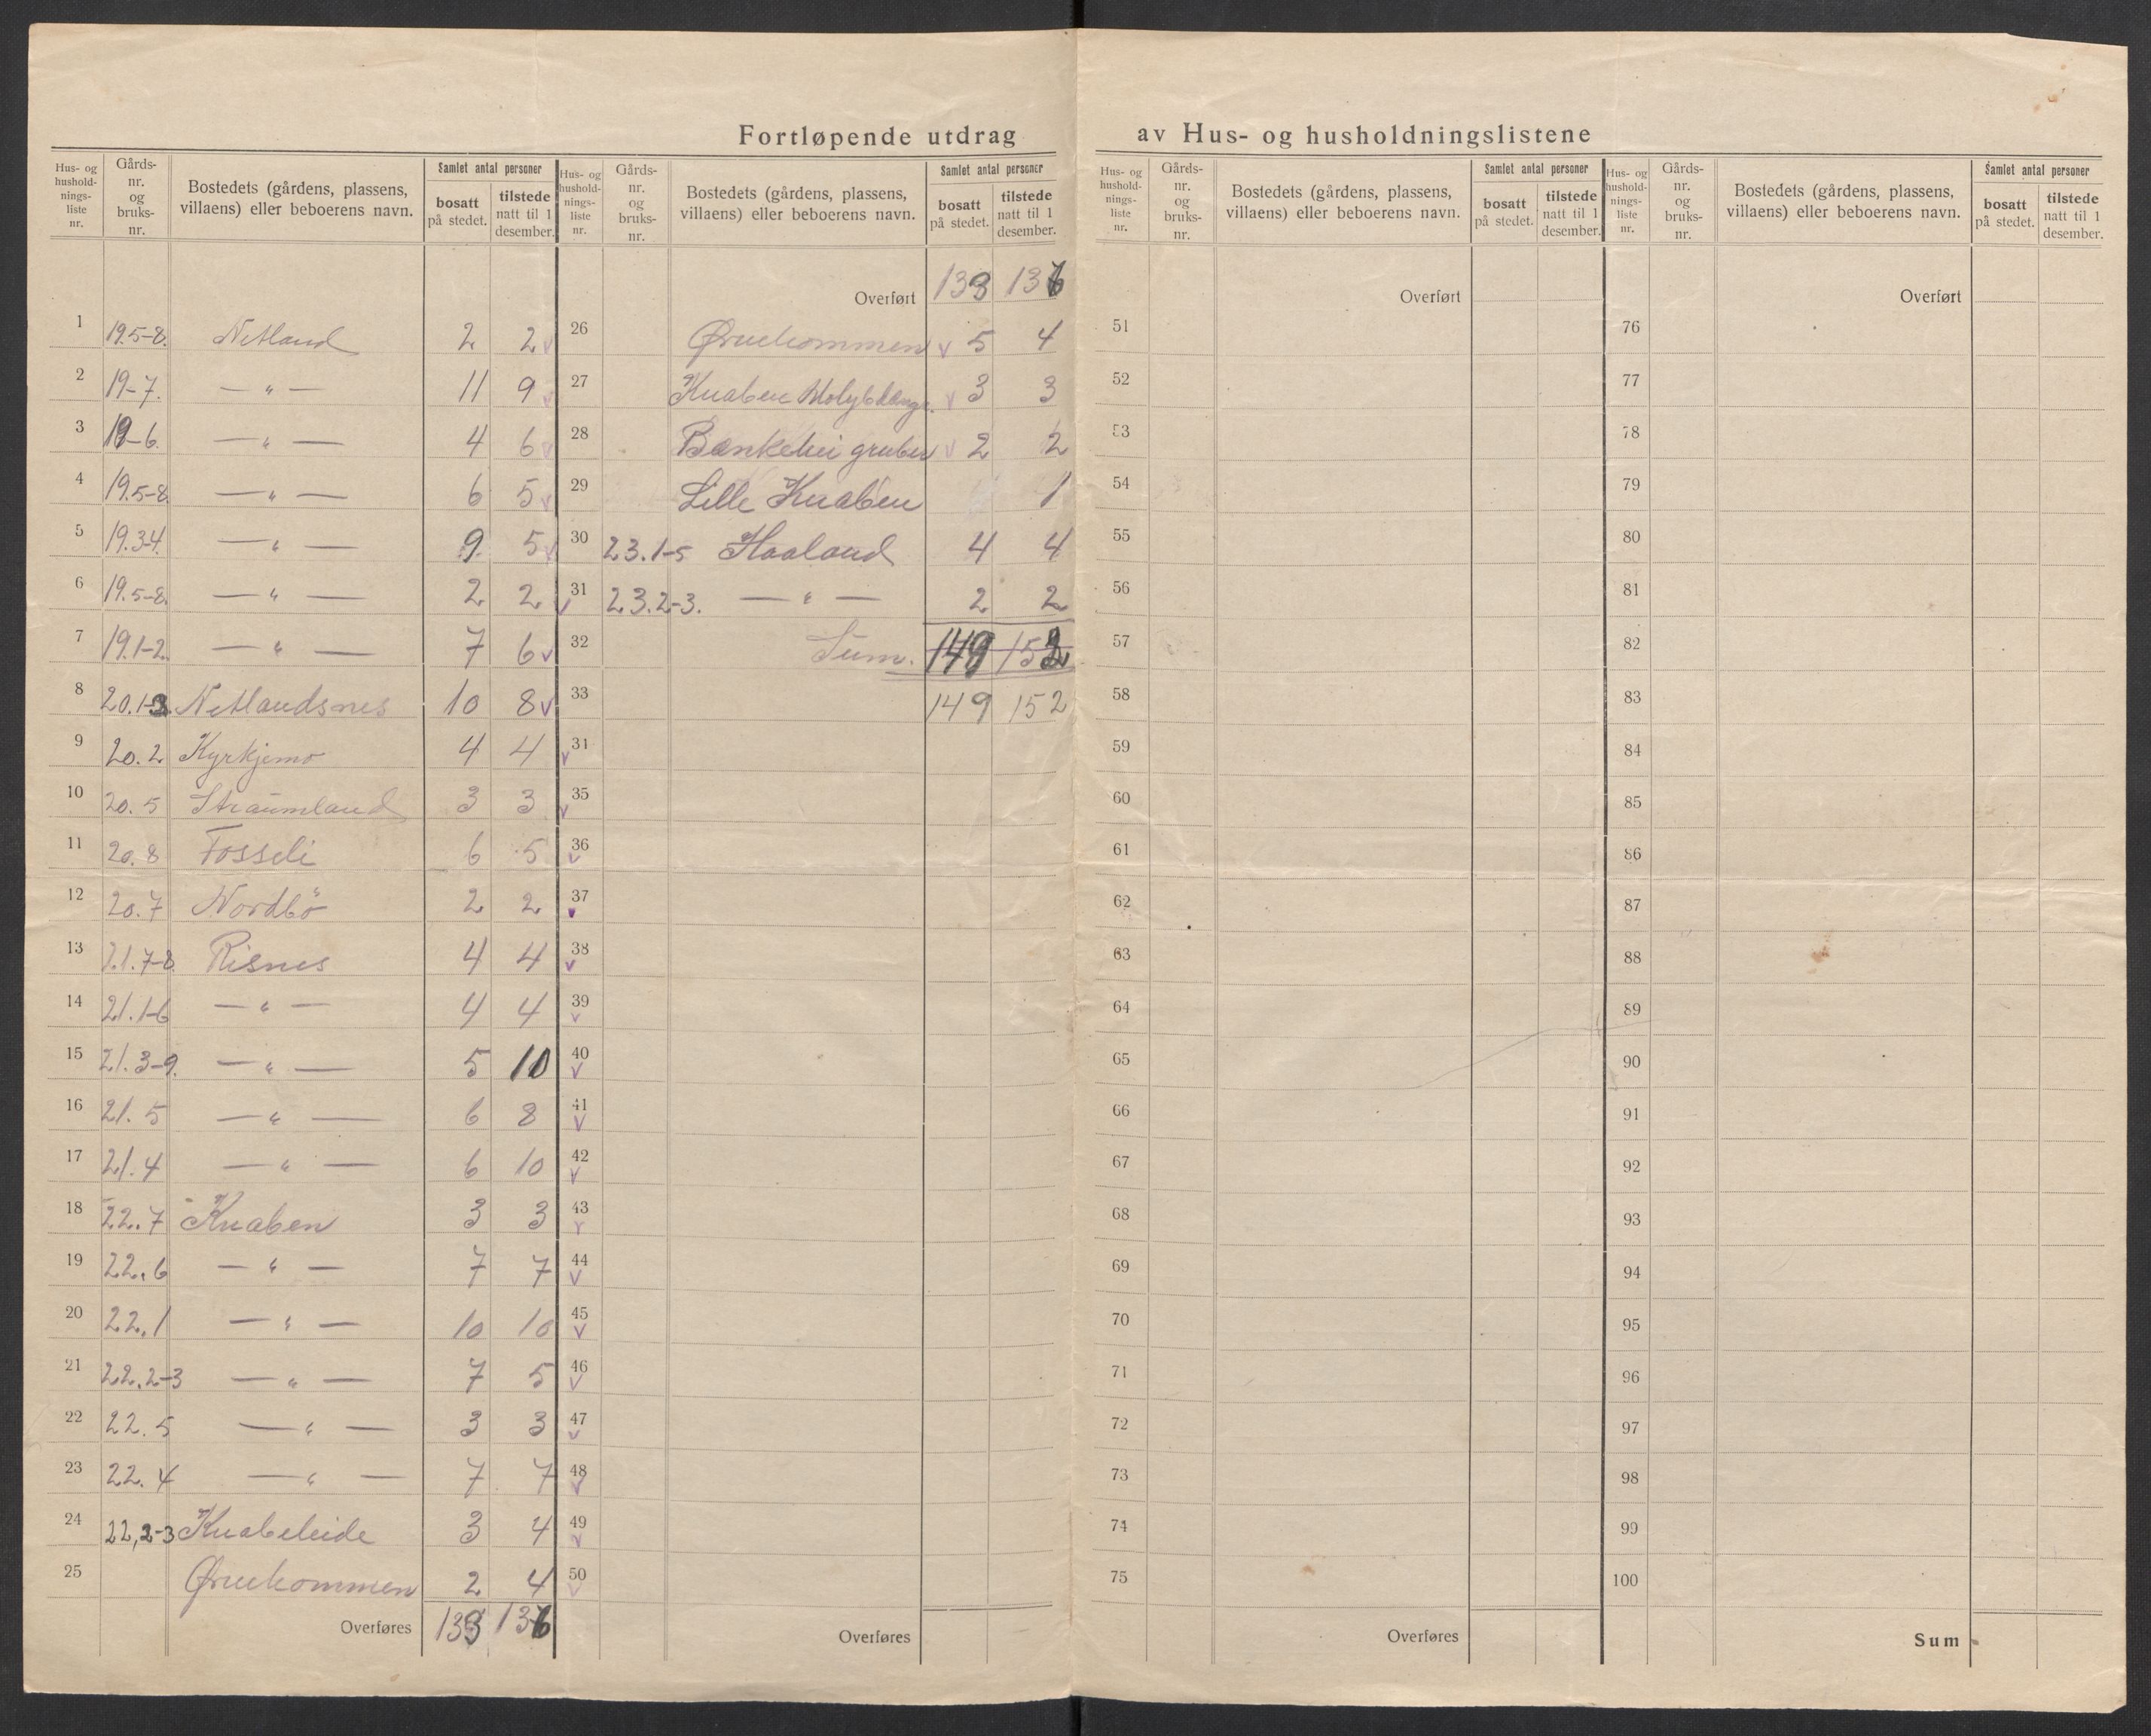 Fortløpende utdrag av Hus- og husholdningslistene
Hus- og hushold-nings-liste nr. Gårds-nr. og bruks-nr. Bostedets (gårdens, plassens, villaens) eller beboerens navn. Samlet antal personer bosatt på stedet. tilstede natt til 1 desember.
1 19.5-8. Netland 2 2 v
2 19-7. — " — 11 9 v
3 19-6. — " — 4 6 v
4 19.5-8. — " — 6 5 v
5 19.3-4. — " — 9 5 v
6 19.5-8. — " — 2 2 v
7 19.1-2. — " — 7 6 v
8 20.1-3. Netlandsnes 10 8 v
9 20.2 Kyrkjemo 4 4 v
10 20.5 Straumland 3 3 v
11 20.8 Fosseli 6 5 v
12 20.7 Nordbö 2 2 v
13 21.7-8 Risnes 4 4 v
14 21.1-6 — " — 4 4 v
15 21.3-9. — " — 5 10 v
16 21.5 — " — 6 8 v
17 21.4 — " — 6 10 v
18 22.7 Knaben 3 3 v
19 22.6 — " — 7 7 v
20 22.1 — " — 10 10 v
21 22.2-3 — " — 7 5 v
22 22.5 — " — 3 3 v
23 22.4 — " — 7 7 v
24 22,2-3 Knabeleide 3 4 v
25 Ørnehommen 2 4 v
Overføres 133 136
Hus- og hushold-nings-liste nr. Gårds-nr. og bruks-nr. Bostedets (gårdens, plassens, villaens) eller beboerens navn. Samlet antal personer bosatt på stedet. tilstede natt til 1 desember.
Overført 133 136
26 Ørnehommen v 5 4
27 Knaben Molybdængr. v 3 3
28 Bankehei gruber v 2 2
29 Lille Knaben 1
30 23.1-5 Haaland 4 4
31 23.2-3. — " — 2 2
32 Sum. 149 152
33 149 152
31
35
36
37
38
39
40
41
42
43
44
45
46
47
48
49
50
Overføres
Hus- og hushold-nings-liste nr. Gårds-nr. og bruks-nr. Bostedets (gårdens, plassens, villaens) eller beboerens navn. Samlet antal personer bosatt på stedet. tilstede natt til 1 desember.
Overført
51
52
53
54
55
56
57
58
59
60
61
62
63
64
65
66
67
68
69
70
71
72
73
74
75
Overføres
Hus- og hushold-nings-liste nr. Gårds-nr. og bruks-nr. Bostedets (gårdens, plassens, villaens) eller beboerens navn. Samlet antal personer bosatt på stedet. tilstede natt til 1 desember.
Overført
76
77
78
79
80
81
82
83
84
85
86
87
88
89
90
91
92
93
94
95
96
97
98
99
100
Sum